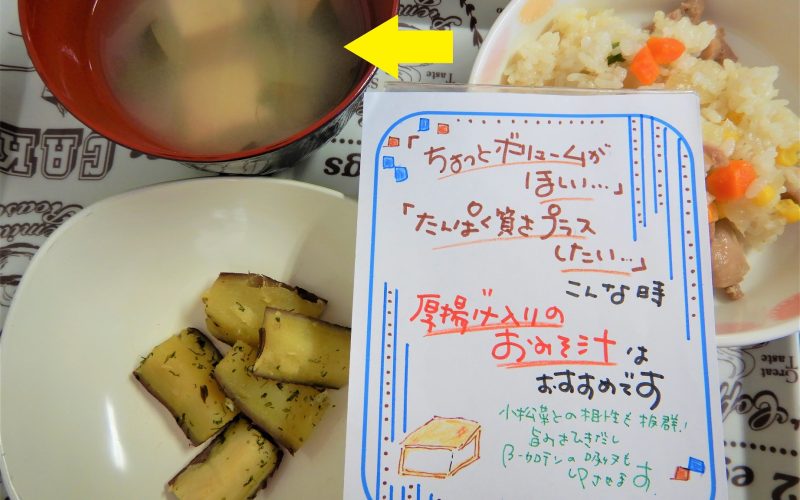 「ちょっとボリュームが
ほしい…」
「たんぱく質をプラス
したい…」
こんな時
厚揚げ入りの
おみそ汁は
おすすめです
小松菜との相性も抜群!
旨みをひきだし
β-カロテンの吸収も
UPさせます
CAK
Great
Taste